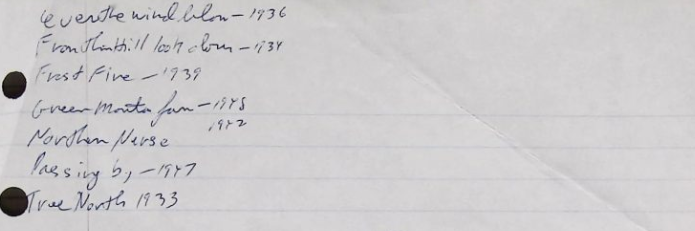 Where the wind blow - 1936
From that hill look down - 1934
Frost Fire - 1939
Green Mounta farm - 1948
1942
Northern Nurse
Passing by - 1947
True North 1933